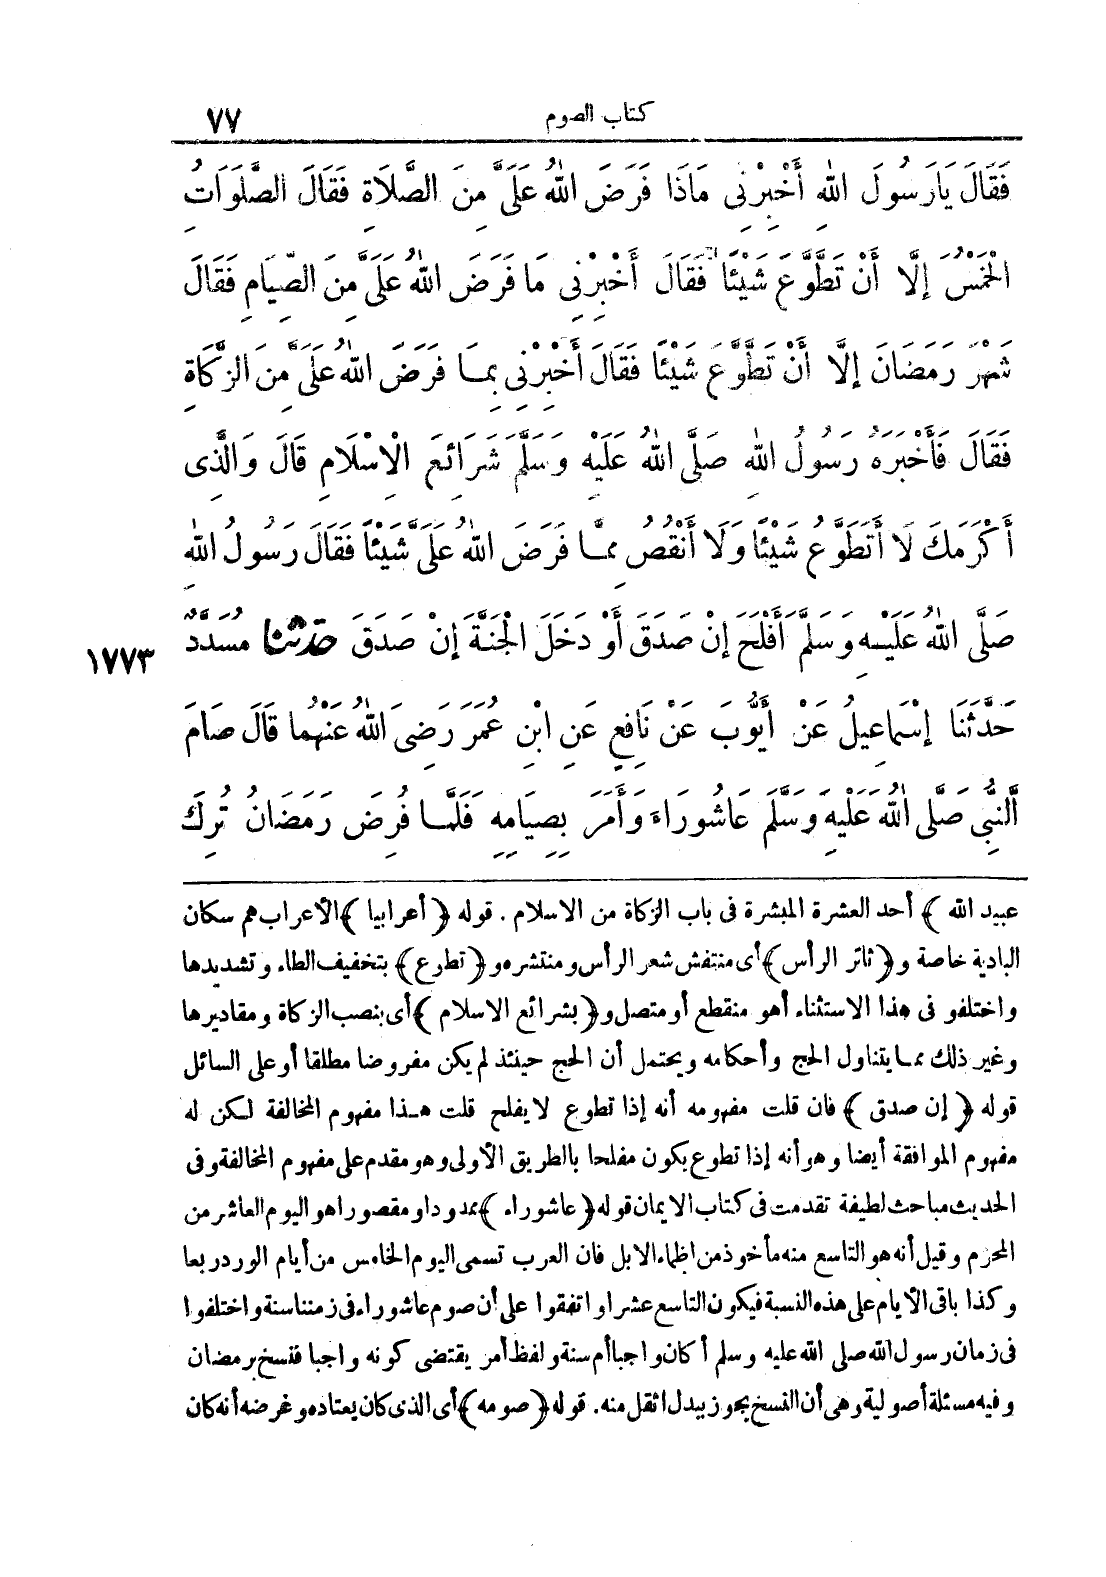 كتاب الصوم ٧٧
فَقَالَ يَارَسُولَ اللهِ أَخْبِرْنِي مَاذَا فَرَضَ اللهُ عَلَيَّ مِنَ الصَّلَاةِ فَقَالَ الصَّلَوَاتِ
الْخَمْسُ إِلَّا أَنْ تَطَّوَّعَ شَيْئًا فَقَالَ أَخْبِرْنِي مَا فَرَضَ اللهُ عَلَيَّ مِنَ الصِّيَامِ فَقَالَ
شَهْرَ رَمَضَانَ إِلَّا أَنْ تَطَّوَّعَ شَيْئًا فَقَالَ أَخْبِرْنِي بِمَا فَرَضَ اللهُ عَلَيَّ مِنَ الزَّكَاةِ
فَقَالَ فَأَخْبَرَهُ رَسُولُ اللهِ صَلَّى اللهُ عَلَيْهِ وَسَلَّمَ شَرَائِعَ الْإِسْلَامِ قَالَ وَالَّذِي
أَكْرَمَكَ لَا أَتَطَوَّعُ شَيْئًا وَلَا أَنْقُصُ مِمَّا فَرَضَ اللهُ عَلَيَّ شَيْئًا فَقَالَ رَسُولُ اللهِ
صَلَّى اللهُ عَلَيْهِ وَسَلَّمَ أَفْلَحَ إِنْ صَدَقَ أَوْ دَخَلَ الْجَنَّةَ إِنْ صَدَقَ حَدَّثَنَا مُسَدَّدٌ ١٧٧٣
حَدَّثَنَا إِسْمَاعِيلُ عَنْ أَيُّوبَ عَنْ نَافِعٍ عَنِ ابْنِ عُمَرَ رَضِيَ اللهُ عَنْهُمَا قَالَ صَامَ
النَّبِيُّ صَلَّى اللهُ عَلَيْهِ وَسَلَّمَ عَاشُورَاءَ وَأَمَرَ بِصِيَامِهِ فَلَمَّا فُرِضَ رَمَضَانُ تُرِكَ
عبيد الله ﴾ أحد العشرة المبشرة فى باب الزكاة من الاسلام . قوله ﴿ أعرابيا ﴾ الأعراب هم سكان
البادية خاصة و﴿ ثائر الرأس ﴾ أى منتفش شعر الرأس ومنتشره و﴿ تطوع ﴾ بتخفيف الطاء وتشديدها
واختلفو فى هذا الاستثناء أهو منقطع أو متصل و﴿ بشرائع الاسلام ﴾ أى بنصب الزكاة ومقاديرها
وغير ذلك مما يتناول الحج وأحكامه ويحتمل أن الحج حينئذ لم يكن مفروضا مطلقا أو على السائل
قوله ﴿ إن صدق ﴾ فان قلت مفهومه أنه إذا تطوع لا يفلح قلت هذا مفهوم المخالفة لكن له
مفهوم الموافقة أيضا وهو أنه إذا تطوع يكون مفلحا بالطريق الأولى وهو مقدم على مفهوم المخالفة وفى
الحديث مباحث لطيفة تقدمت فى كتاب الايمان قوله ﴿ عاشوراء ﴾ ممدودا ومقصورا هو اليوم العاشر من
المحرم وقيل أنه هو التاسع منه مأخوذ من اظماء الابل فان العرب تسمى اليوم الخامس من أيام الورد ربعا
وكذا باقى الأيام على هذه النسبة فيكون التاسع عشرا واتفقوا على أن صوم عاشوراء فى زمننا سنة واختلفوا
فى زمان رسول الله صلى الله عليه وسلم أكان واجبا أم سنة ولفظ أمر يقتضى كونه واجبا فنسخ برمضان
وفيه مسئلة أصولية وهى أن النسخ يجوز ببدل اثقل منه. قوله ﴿ صومه ﴾ أى الذى كان يعتاده وغرضه أنه كان